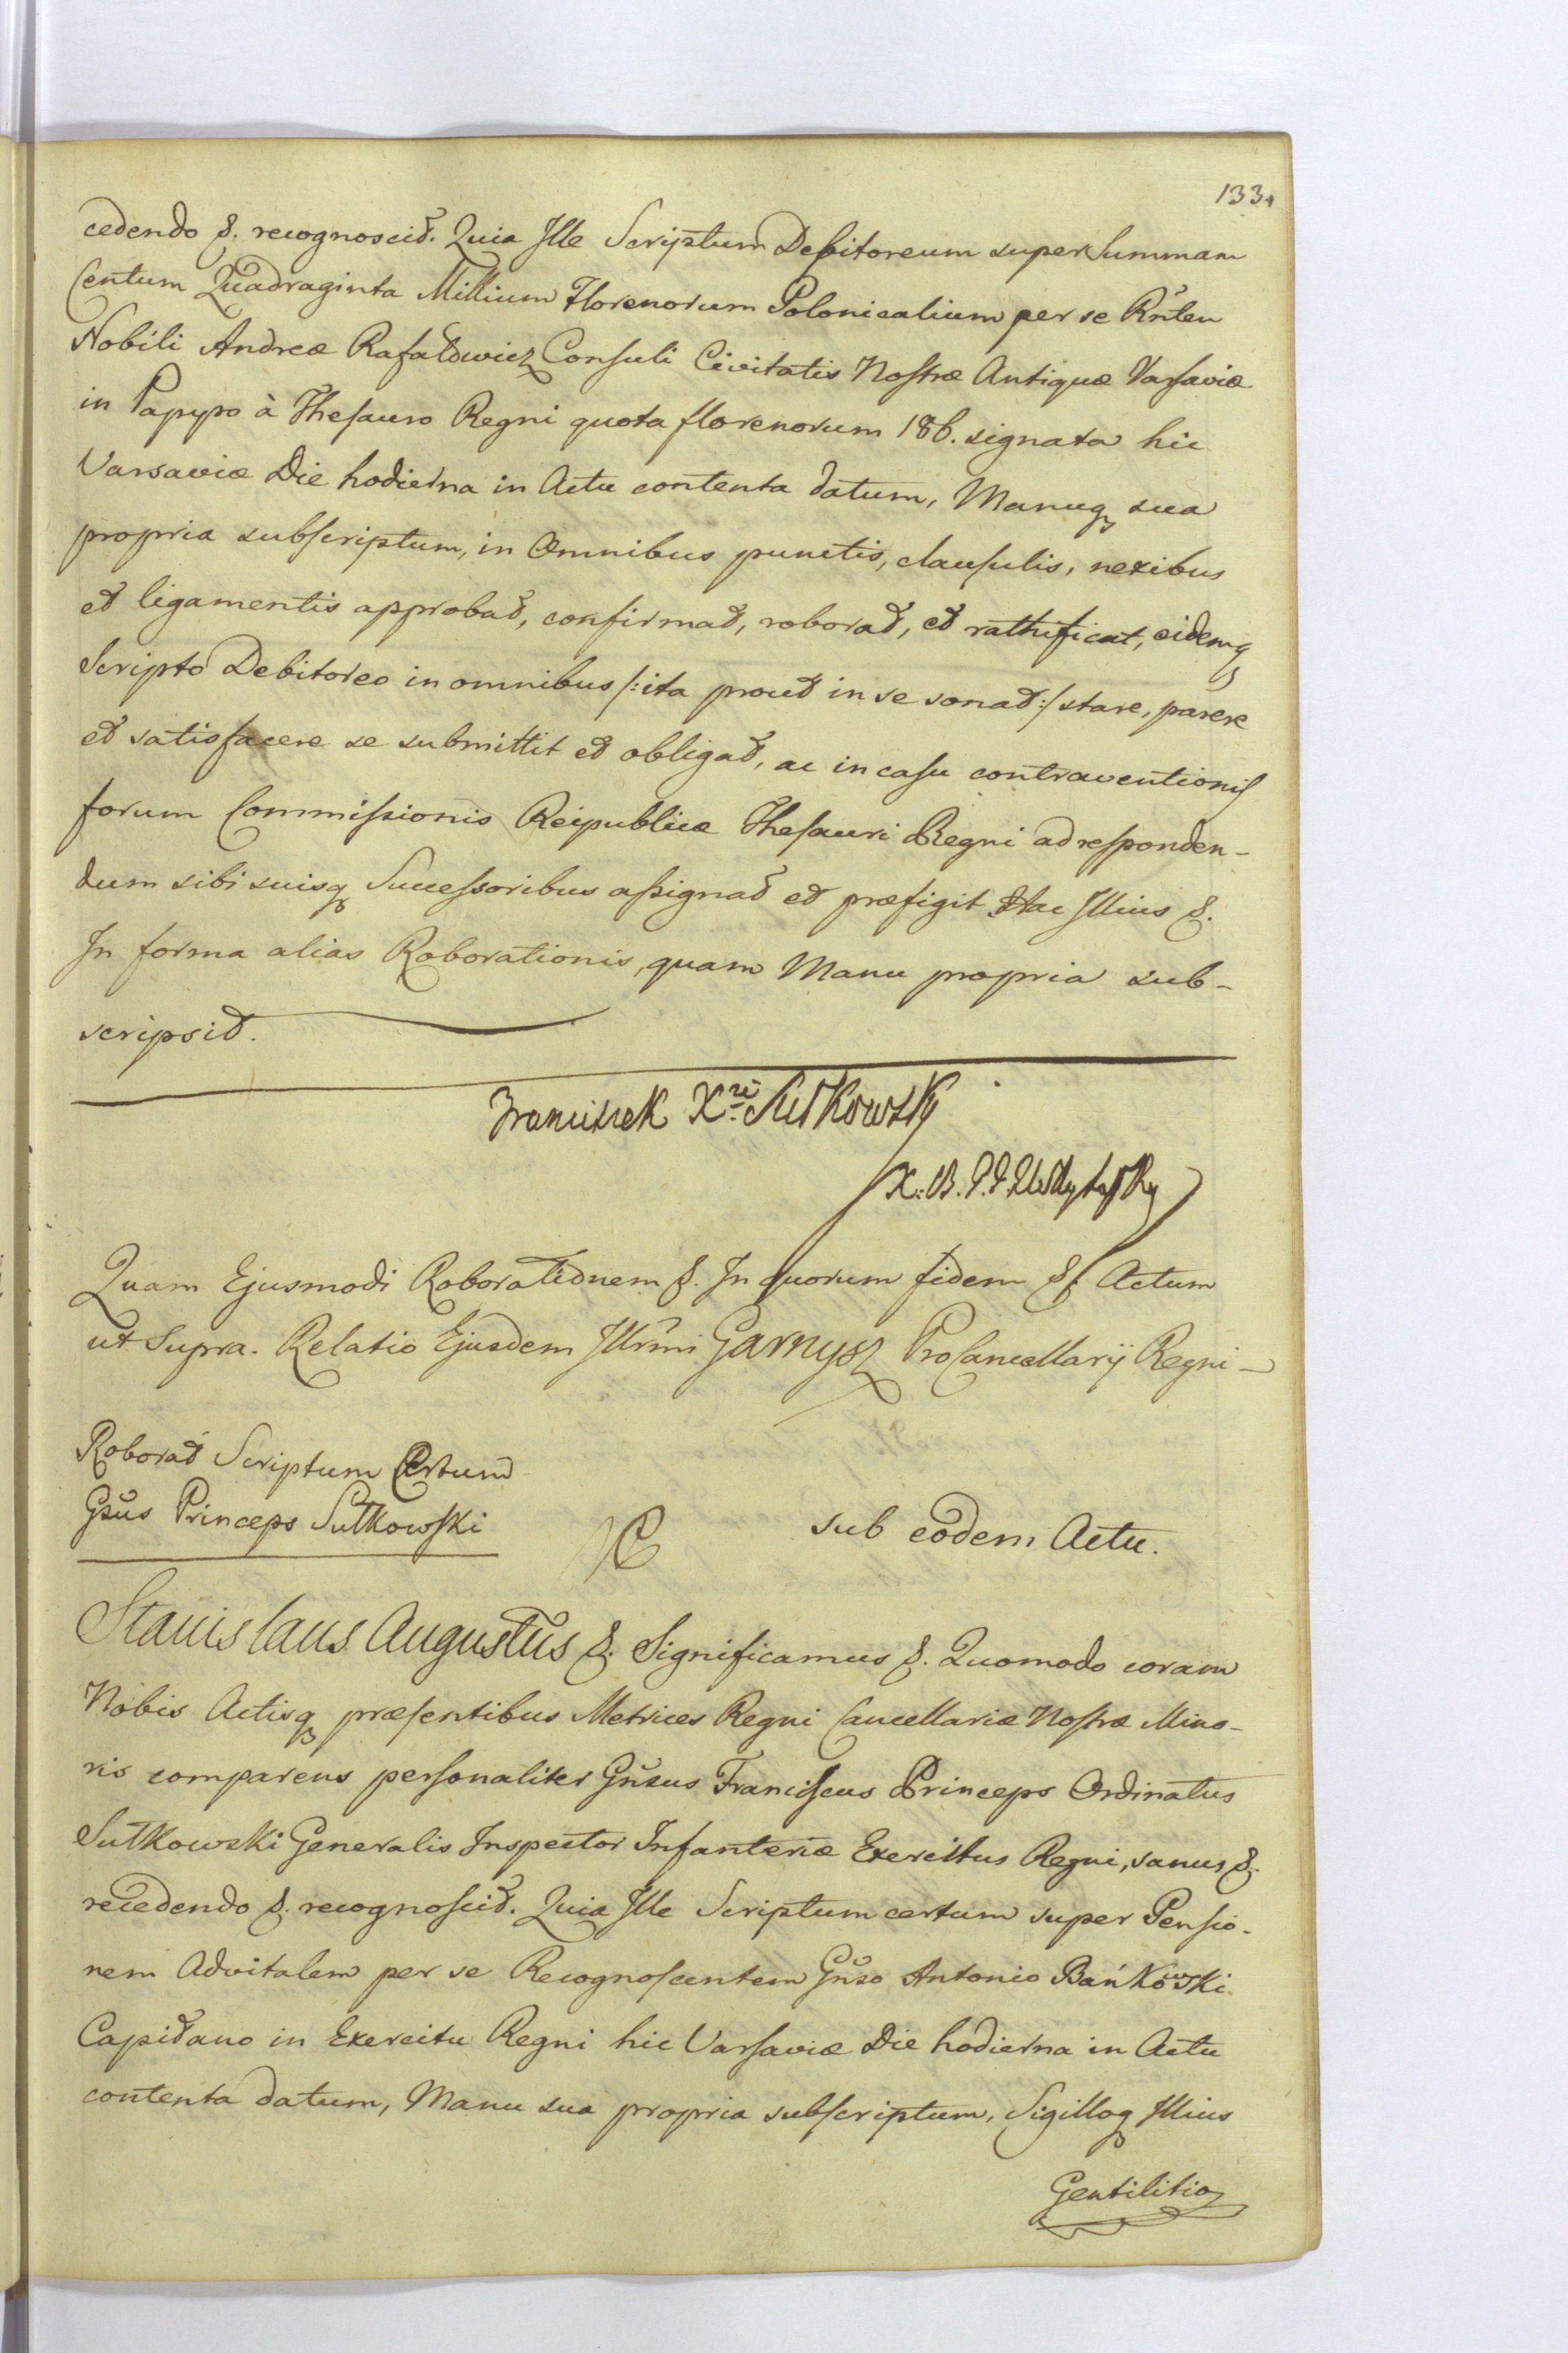 133
cedendo &. recognoscit. Quia Ille Scriptum Debitoreum super Summam
Centum Quadraginta Millium Florenorum Polonicalium per se Rñtem
Nobili Andreæ Rafałowicz Consuli Civitatis Nostræ Antiquæ Varsaviæ
in Papyro à Thesauro Regni quota florenorum 186. signata hic
Varsaviæ Die hodierna in Actu contenta datum, Manuq sua
propria subscriptum, in Omnibus punctis, clausulis, nexibus
et ligamentis approbat, confirmat, roborat, et rathificat, eidemq
Scripto Debitoreo in omnibus /:ita prout in se sonat:/ stare, parere
et satisfacere se submittit et obligat, ac in casu contraventionis
forum Commissionis Reipublicæ Thesauri Regni ad responden-
dum sibi suisq Successoribus assignat et præfigit Hac Illius &.
In forma alias Roborationis, quam Manu propria sub-
scripsit.
Franciszek Xże Sułkowsky
Quam Ejusmodi Roborationem &. In quorum fidem & Actum
ut Supra. Relatio Ejusdem Illrmi Garnysz ProCancellarij Regni
Roborat Scriptum Certum
Gsũs Princeps Sułkowski
sub eodem Actu.
Stanislaus Augustus &. Significamus &. Quomodo coram
Nobis Actisq præsentibus Metrices Regni Cancellariæ Nostræ Mino-
ris comparens personaliter Gñsus Franciscus Princeps Ordinatus
Sułkowski Generalis Inspector Infanteriæ Exercitus Regni, sanus &
recedendo &. recognoscit. Quia Ille Scriptum certum super Pensio-
nem Advitalem per se Recognoscentem Gñso Antonio Bańkowski
Capitano in Exercitu Regni hic Varsaviæ Die hodierna in Actu
contenta datum, Manu sua propria subscriptum, Sigilloq Illius
Gentilitio